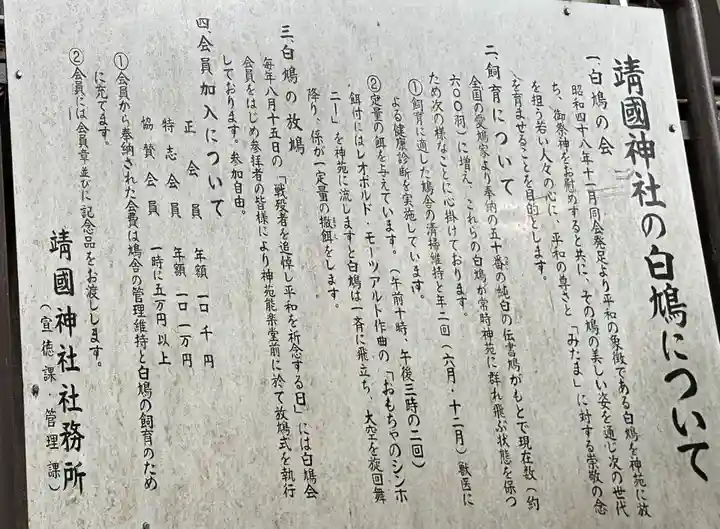 靖國神社の白鳩について
一、白鳩の会
昭和四十八年十一月同会発足より平和の象徴である白鳩を神苑に放
ち、御祭神をお慰めすると共に、その鳩の美しい姿を通じ次の世代
を担う若い人々の心に、平和の尊さと「みたま」に対する崇敬の念
を育ませることを目的とします。
二、飼育について
全国の愛鳩家より奉納の五十番の純白の伝書鳩がもとで現在数(約
六〇〇羽)に増え、これらの白鳩が常時神苑に群れ飛ぶ状態を保つ
ため次の様なことに心掛けております。
①飼育に適した鳩舎の清掃維持と年二回(六月・十二月)獣医に
よる健康診断を実施しています。
②定量の餌を与えています。(午前十時、午後三時の二回)
餌付にはレオポルド・モーツアルト作曲の「おもちゃのシンホ
ニー」を神苑に流しますと白鳩は一斉に飛立ち、大空を旋回舞
降り、係が一定量の撒餌をします。
三、白鳩の放鳩
毎年八月十五日の「戦歿者を追悼し平和を祈念する日」には白鳩会
会員をはじめ参拝者の皆様により神苑能楽堂前に於て放鳩式を執行
しております。参加自由。
四、会員加入について
正会員 年額 一口 千円
特志会員 年額 一口 一万円
協賛会員 一時に五万円以上
①会員から奉納された会費は鳩舎の管理維持と白鳩の飼育のため
に充てます。
②会員には会員章並びに記念品をお渡しします。
靖國神社社務所
(宣徳課・管理課)